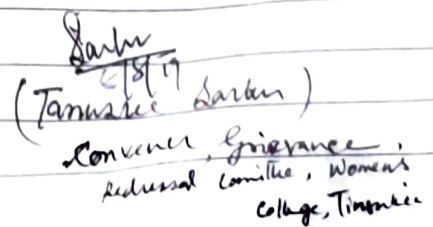 Sarkar
6/8/19
(Tanusree Sarkar)
Convener, Grievance
Redressal Committee, Women's
College, Tinsukia